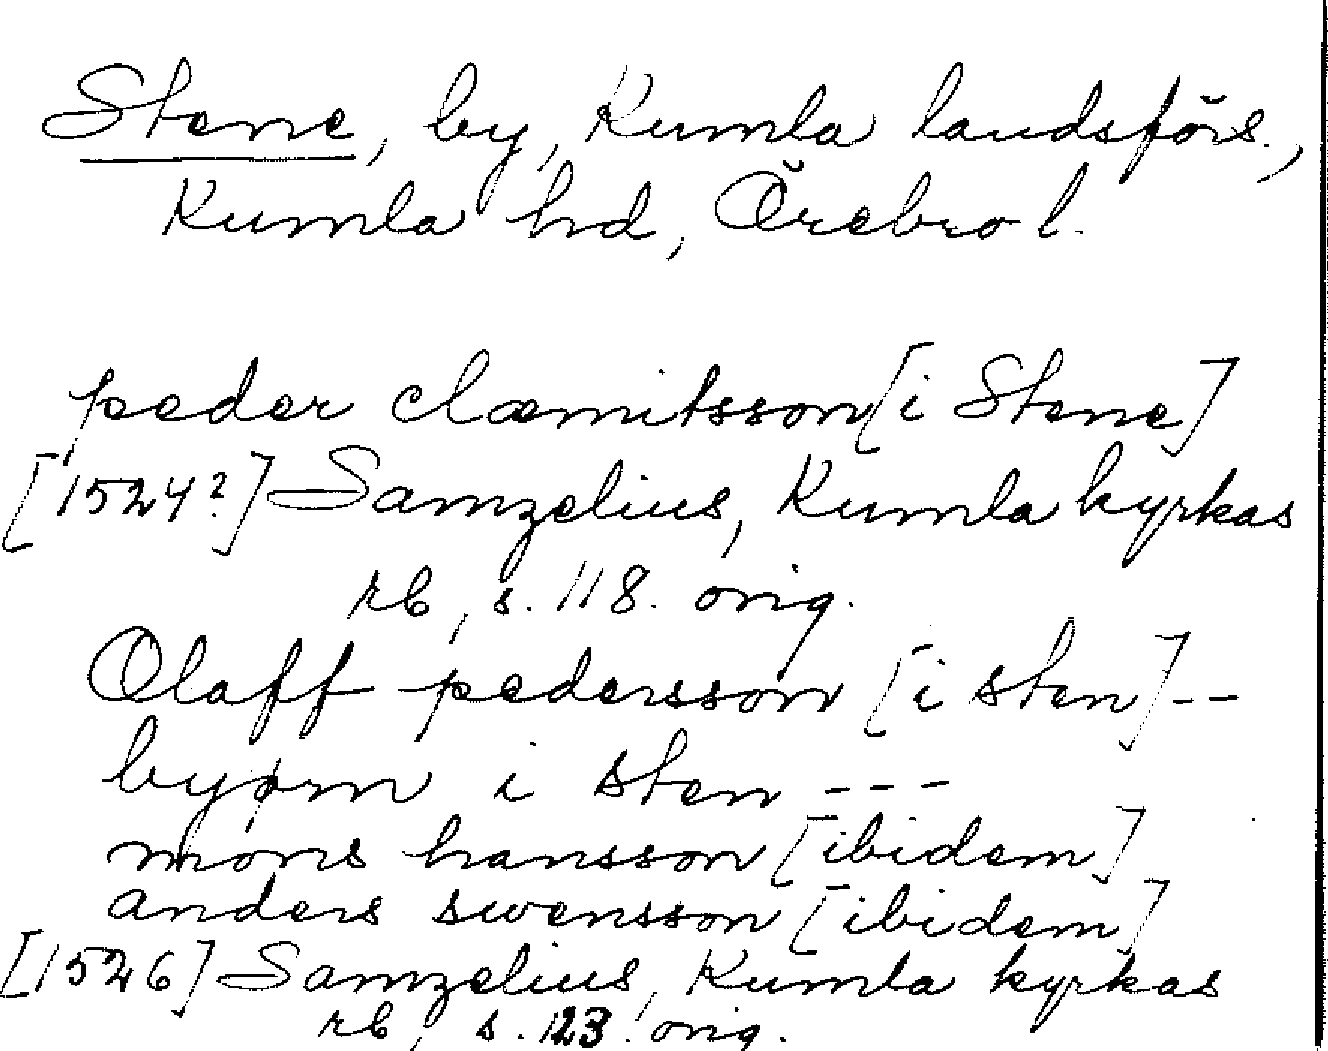 Stene, by, Kumla landsförs.,
Kumla hd, Örebro l.
peder clæmitsson [i Stene]
[1524?] Samzelius, Kumla kyrkas
rb, s. 118. orig.
Olaff pedersson [i sten] --
byørn i sten ---
mons hansson [ibidem]
anders swensson [ibidem]
[1526] Samzelius, Kumla kyrkas
rb, s. 123. orig.